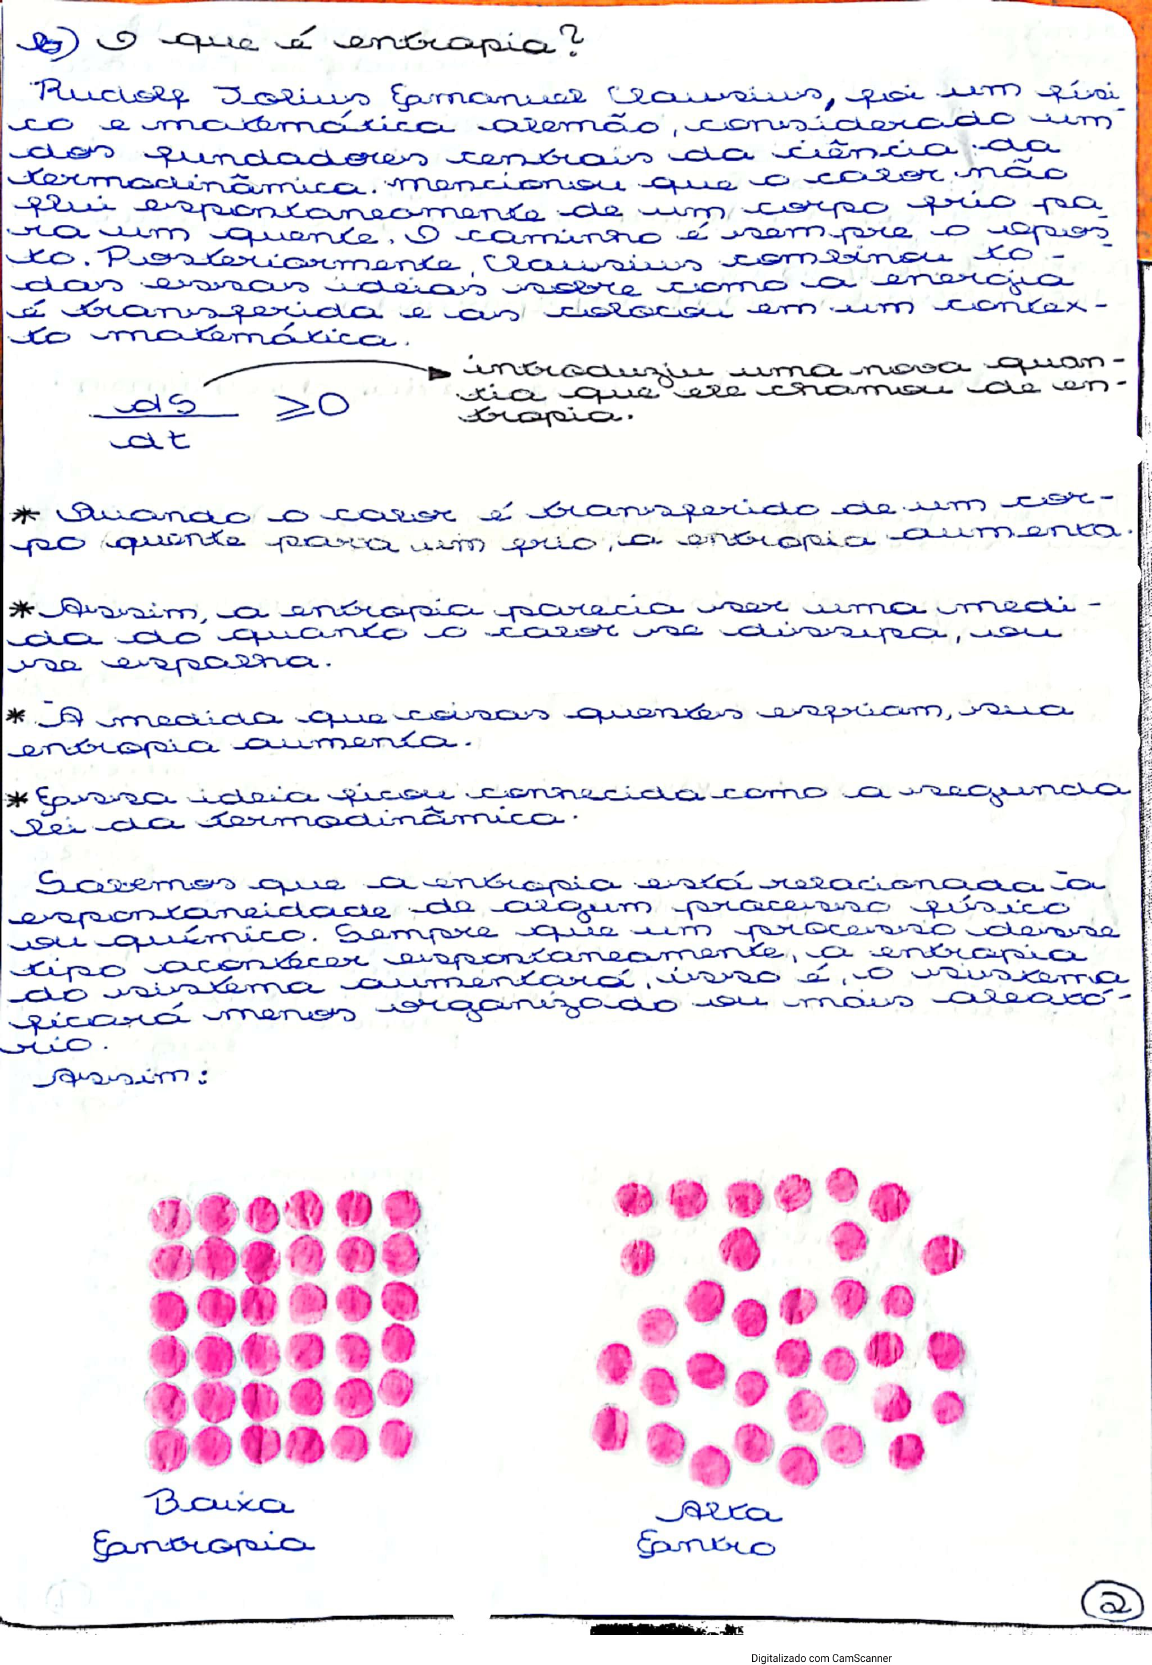 b) O que é entropia?
Rudolf Jolius Emanuel Clausius, foi um físi
co e matemática alemão, considerado um
dos fundadores centrais da ciência da
termodinâmica. mencionou que o calor não
flui espontaneamente de um corpo frio pa
ra um quente. O caminho é sempre o opos
to. Posteriormente, Clausius combinou to-
das essas ideias sobre como a energia
é transferida e as colocou em um contex-
to matemática.
introduziu uma nova quan-
tia que ele chamou de en-
tropia.
dS
dt
≥0
* Quando o calor é transferido de um cor-
po quente para um frio, a entropia aumenta.
* Assim, a entropia parecia ser uma medi-
da do quanto o calor se dissipa, ou
se espalha.
* À medida que coisas quentes esfriam, sua
entropia aumenta.
* Essa ideia ficou connecida como a segunda
lei da termodinâmica.
Sabemos que a entropia está relacionada à
espontaneidade de algum processo físico
ou químico. Sempre que um processo desse
tipo acontecer espontaneamente, a entropia
do sistema aumentará, isso é, o sistema
ficará menos organizado ou mais aleató-
rio.
Assim:
Baixa
Entropia
Alta
Entro
2
Digitalizado com CamScanner